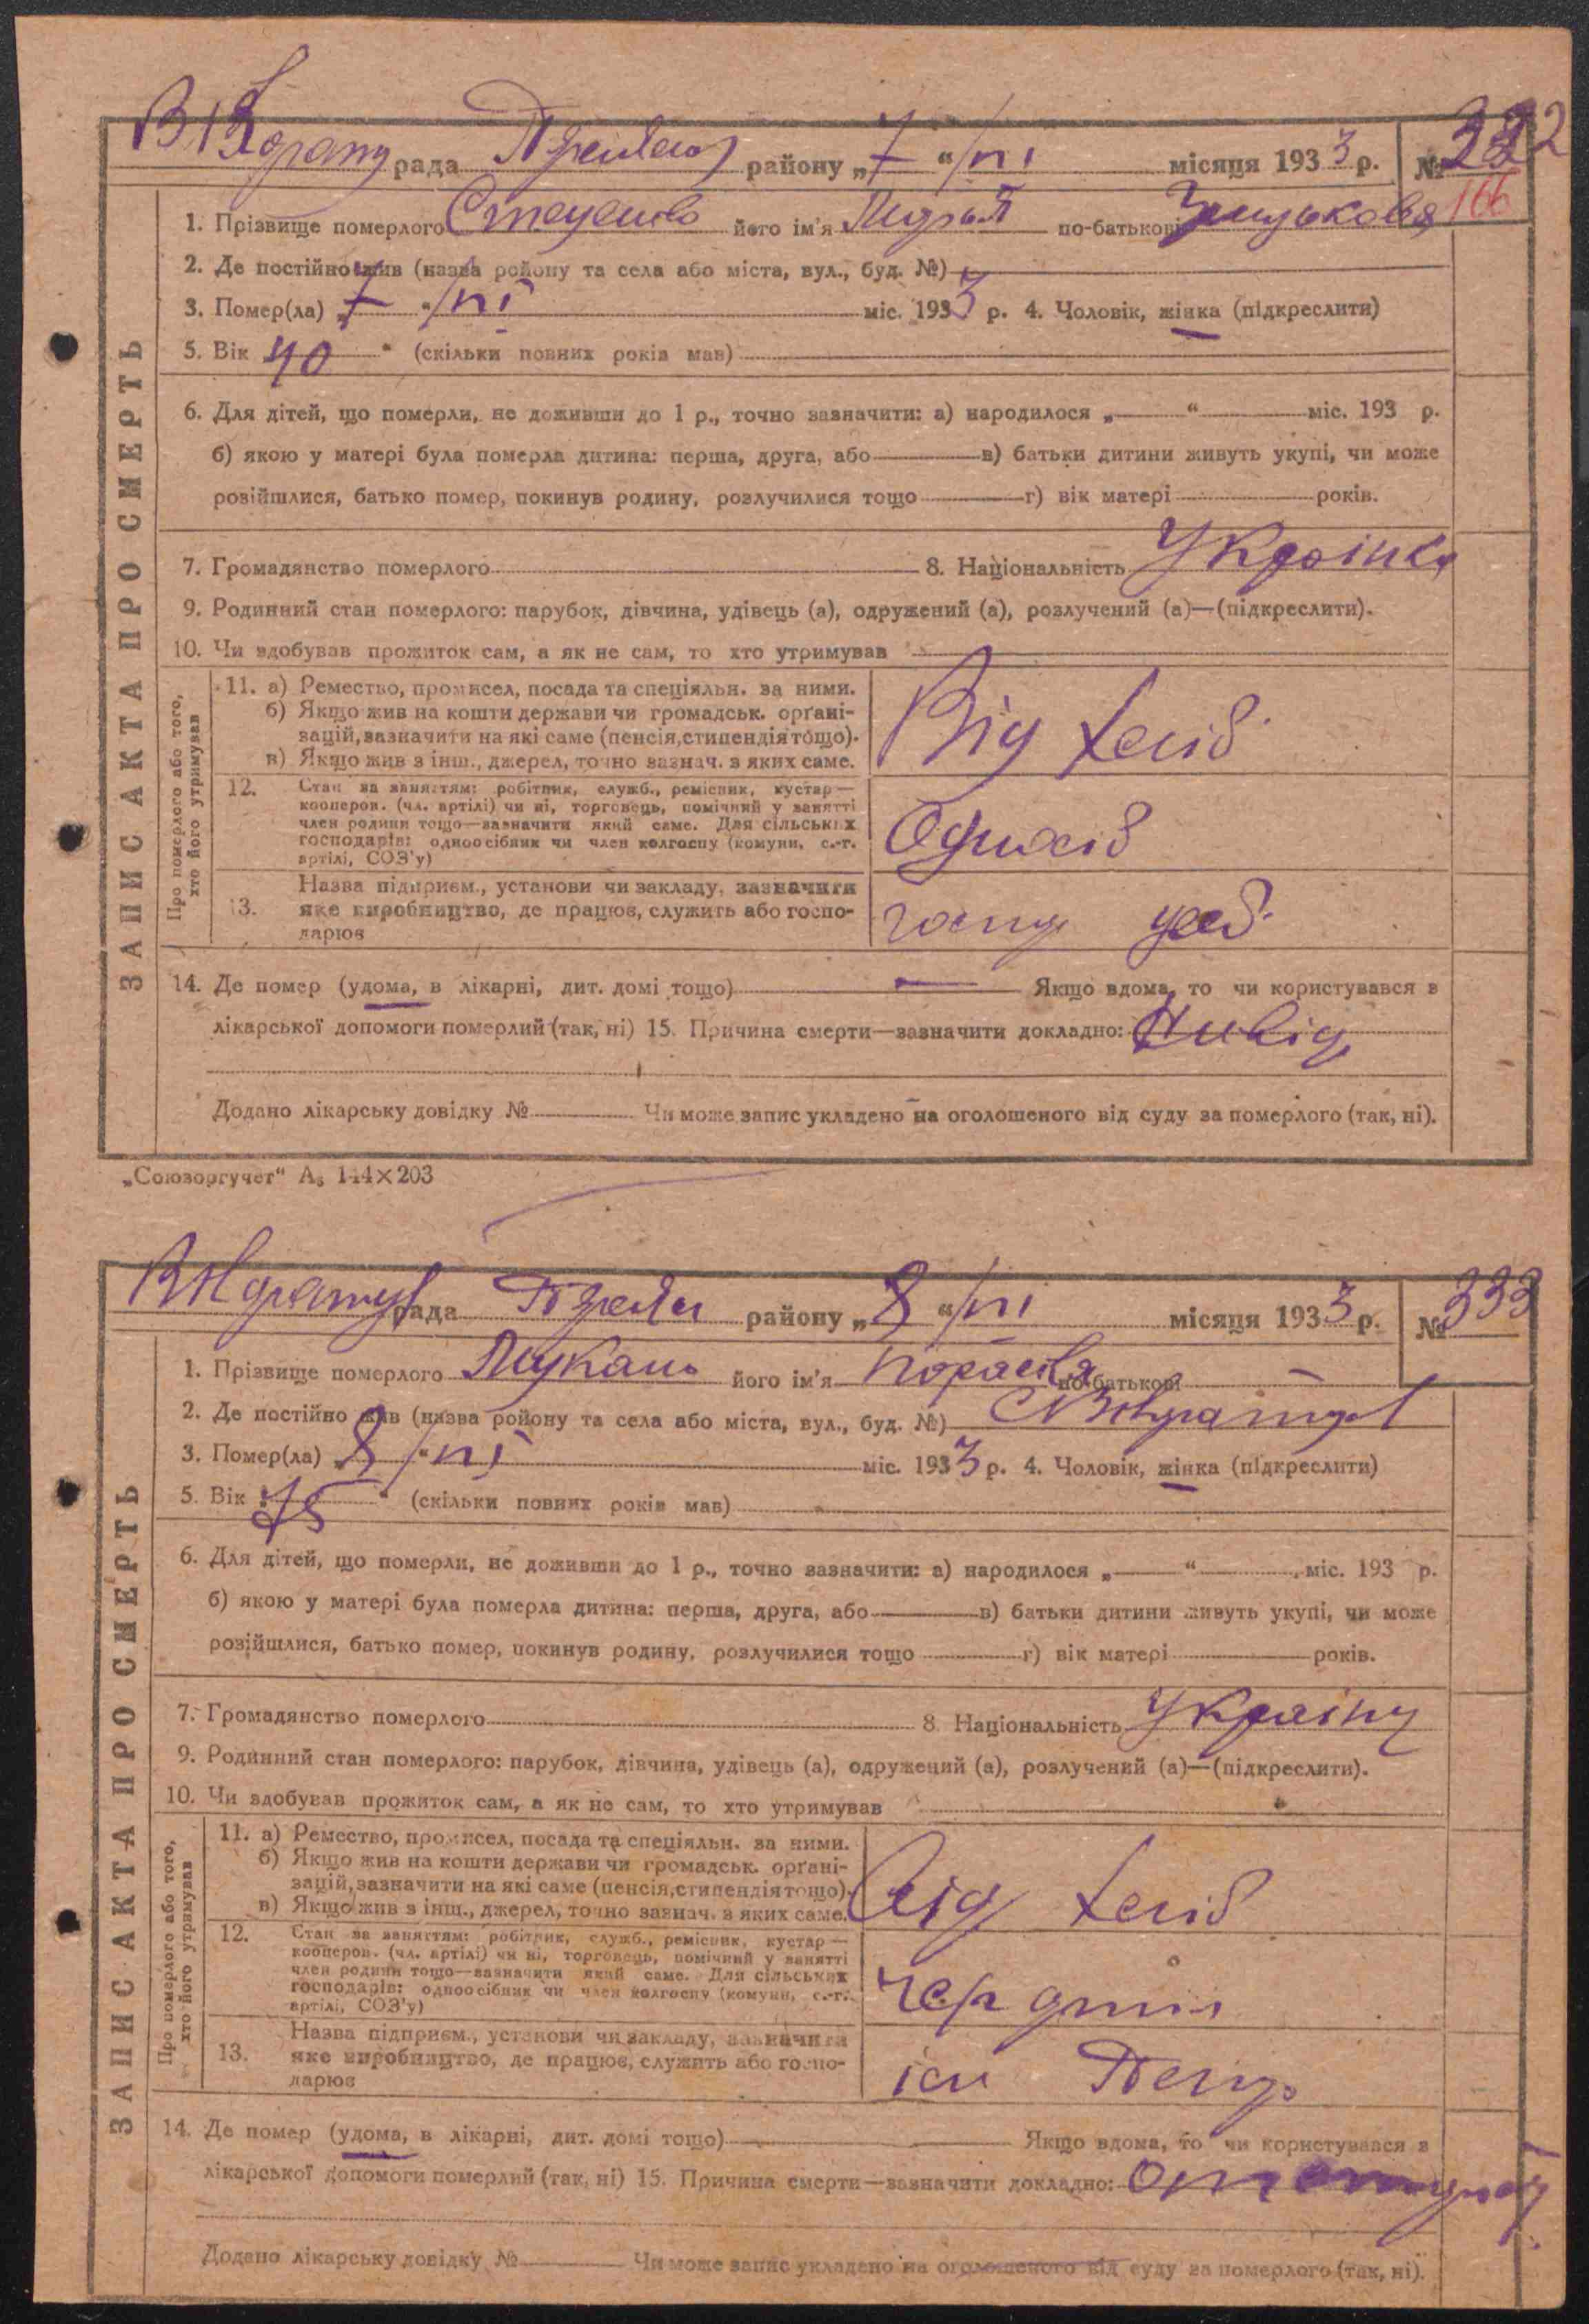 рада району „7 “/VI місяця 1933 р. № 332
166
1. Прізвище померлого його ім'я по-батькові
2. Де постійно жив (назва ройону та села або міста, вул., буд. №)
3. Помер(ла) „7 “/VI міс. 1933 р. 4. Чоловік, жінка (підкреслити)
5. Вік 40 “ (скільки повних років мав)
6. Для дітей, що померли, не доживши до 1 р., точно зазначити: а) народилося „ “ міс. 193 р.
б) якою у матері була померла дитина: перша, друга, або в) батьки дитини живуть укупі, чи може
розійшлися, батько помер, покинув родину, розлучилися тощо г) вік матері років.
7. Громадянство померлого 8. Національність Українка
9. Родинний стан померлого: парубок, дівчина, удівець (а), одружений (а), розлучений (а)—(підкреслити).
10. Чи здобував прожиток сам, а як не сам, то хто утримував
Про померлого або того, хто його утримував
11. а) Ремество, промисел, посада та спеціяльн. за ними.
б) Якщо жив на кошти держави чи громадськ. орґані-
зацій, зазначити на які саме (пенсія, стипендія тощо).
в) Якщо жив з інш., джерел, точно зазнач. з яких саме.
Від
12. Стан за заняттям: робітник, служб., ремісник, кустар—
кооперов. (чл. артілі) чи ні, торговець, помічний у занятті
член родини тощо—зазначити який саме. Для сільських
господарів: одноосібник чи член колгоспу (комуни, с.-г.
артілі, СОЗ'у)
Одноосіб
13. Назва підприєм., установи чи закладу, зазначити
яке виробництво, де працює, служить або госпо-
дарює
14. Де помер (удома, в лікарні, дит. домі тощо) Якщо вдома, то чи користувався з
лікарської допомоги померлий (так, ні) 15. Причина смерти—зазначити докладно:
Додано лікарську довідку № Чи може запис укладено на оголошеного від суду за померлого (так, ні).
ЗАПИС АКТА ПРО СМЕРТЬ
„Союзоргучет“ А₅ 144×203
рада району „8 “/VI місяця 1933 р. № 333
1. Прізвище померлого його ім'я по-батькові
2. Де постійно жив (назва ройону та села або міста, вул., буд. №)
3. Помер(ла) „8 “/VI міс. 1933 р. 4. Чоловік, жінка (підкреслити)
5. Вік 75 “ (скільки повних років мав)
6. Для дітей, що померли, не доживши до 1 р., точно зазначити: а) народилося „ “ міс. 193 р.
б) якою у матері була померла дитина: перша, друга, або в) батьки дитини живуть укупі, чи може
розійшлися, батько помер, покинув родину, розлучилися тощо г) вік матері років.
7. Громадянство померлого 8. Національність
9. Родинний стан померлого: парубок, дівчина, удівець (а), одружений (а), розлучений (а)—(підкреслити).
10. Чи здобував прожиток сам, а як не сам, то хто утримував
Про померлого або того, хто його утримував
11. а) Ремество, промисел, посада та спеціяльн. за ними.
б) Якщо жив на кошти держави чи громадськ. орґані-
зацій, зазначити на які саме (пенсія, стипендія тощо).
в) Якщо жив з інш., джерел, точно зазнач. з яких саме.
12. Стан за заняттям: робітник, служб., ремісник, кустар—
кооперов. (чл. артілі) чи ні, торговець, помічний у занятті
член родини тощо—зазначити який саме. Для сільських
господарів: одноосібник чи член колгоспу (комуни, с.-г.
артілі, СОЗ'у)
13. Назва підприєм., установи чи закладу, зазначити
яке виробництво, де працює, служить або госпо-
дарює
14. Де помер (удома, в лікарні, дит. домі тощо) Якщо вдома, то чи користувався з
лікарської допомоги померлий (так, ні) 15. Причина смерти—зазначити докладно:
Додано лікарську довідку № Чи може запис укладено на оголошеного від суду за померлого (так, ні).
ЗАПИС АКТА ПРО СМЕРТЬ